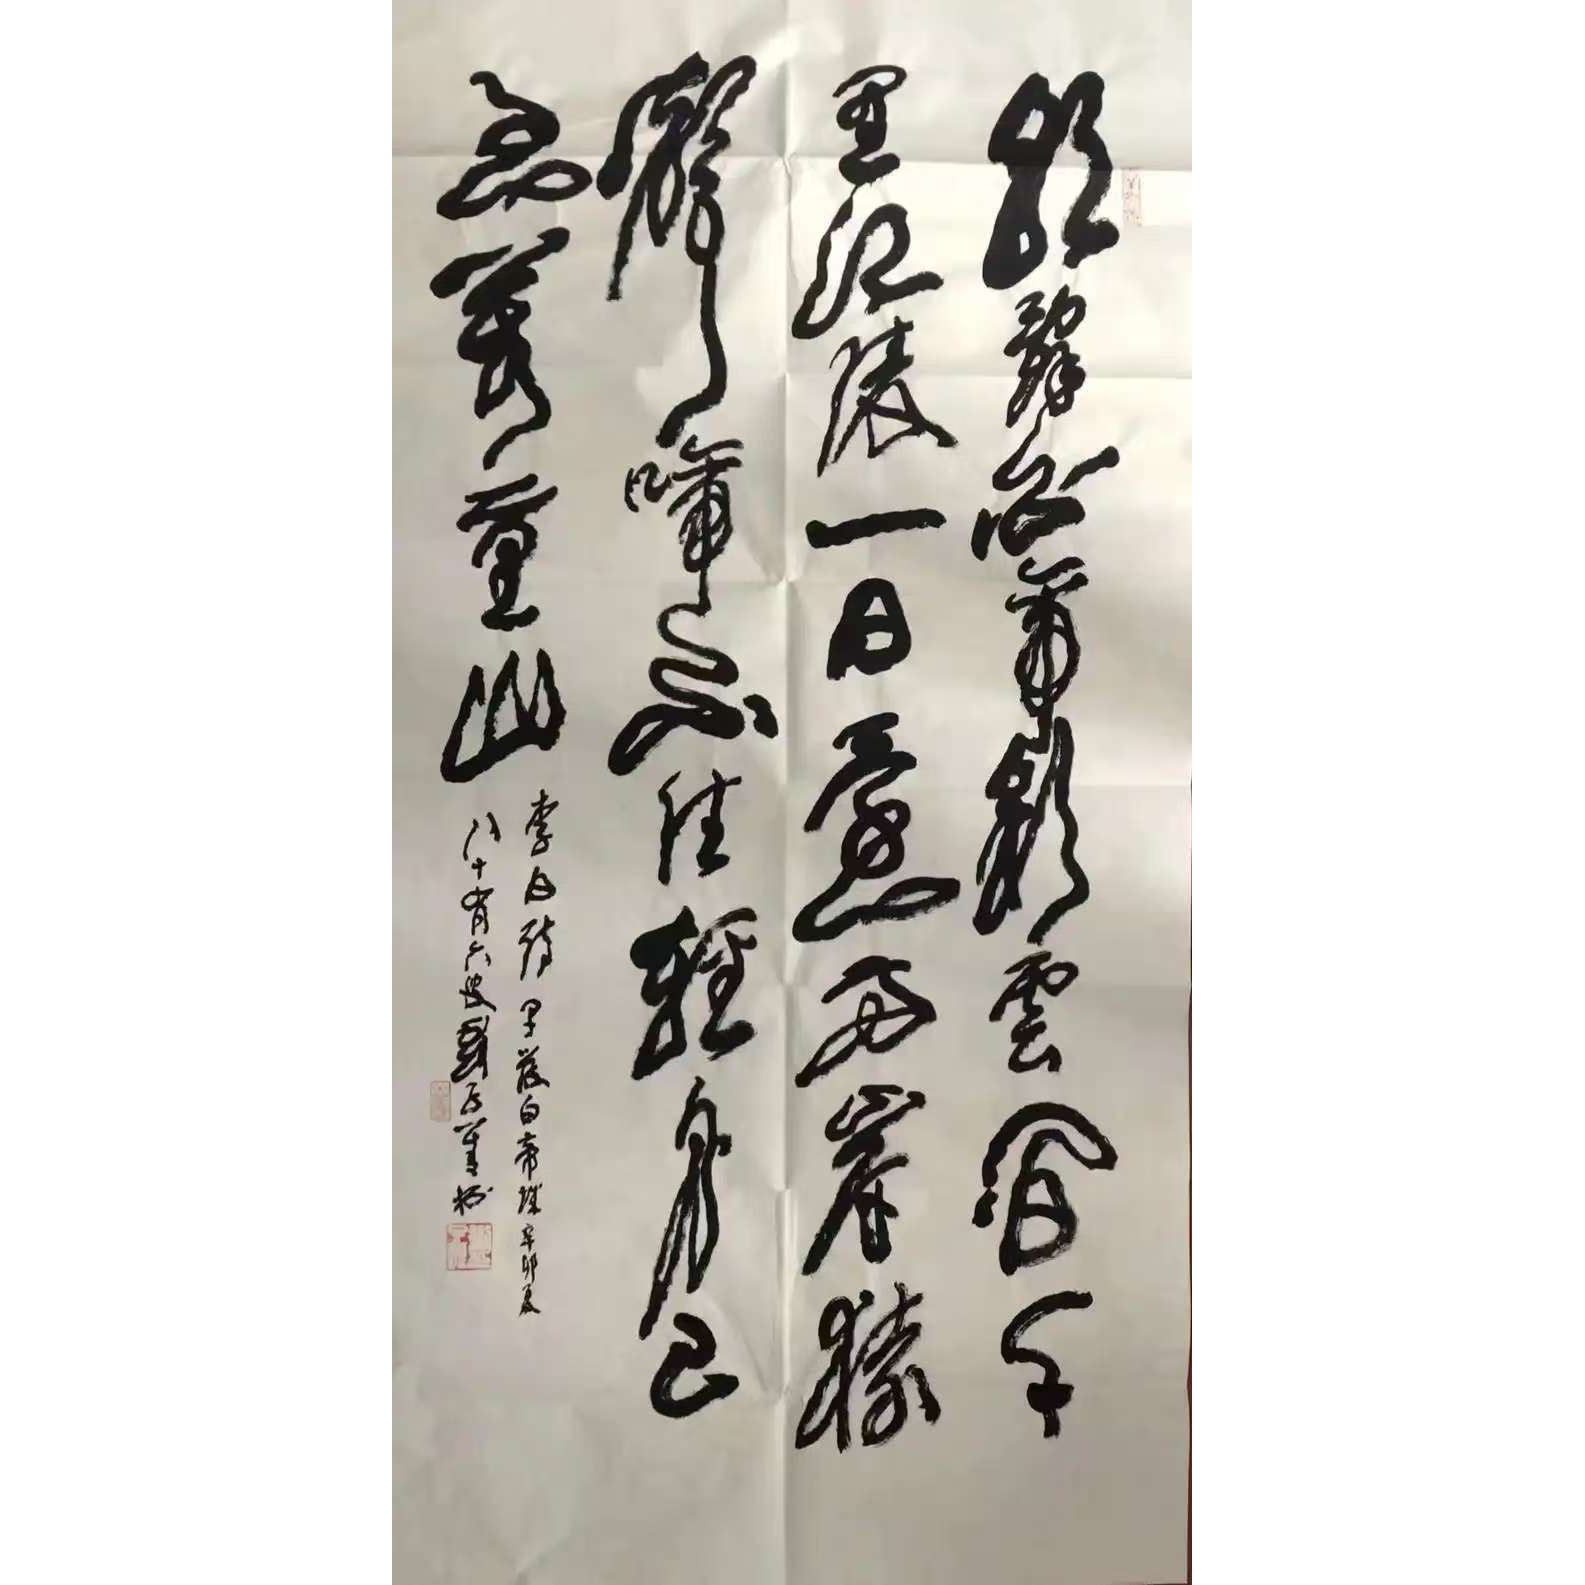 朝辭白帝彩雲間千
里江陵一日還兩岸猿
聲啼不住輕舟已
過萬重山
李白詩早發白帝城辛卯夏
八十有六叟